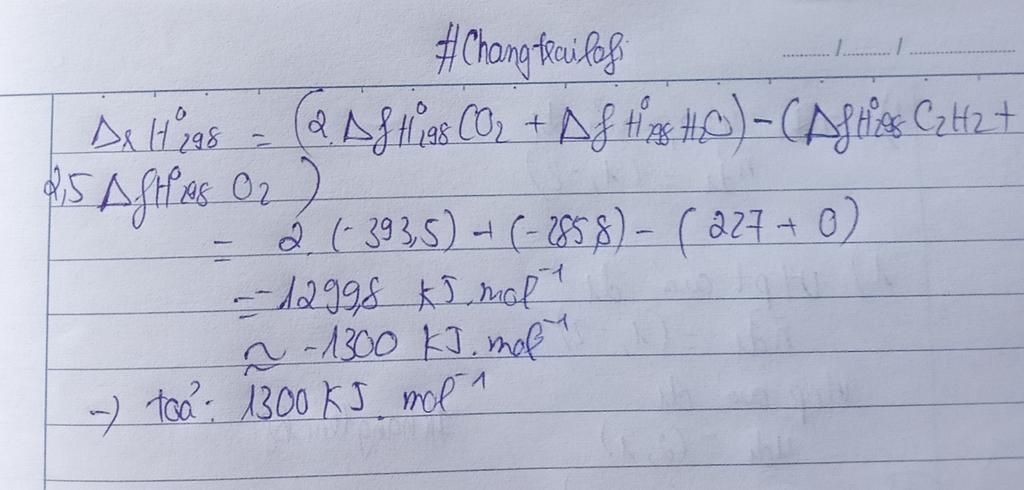 #Changtraifafi
............/............/......................
ΔrH°298 = (2.ΔfH°298CO2 + ΔfH°298H2O) - (ΔfH°298 C2H2 +
2,5 ΔfH°298 O2)
= 2.(-393,5) + (-285,8) - (227 + 0)
= -1299,8 KJ.mol⁻¹
≈ -1300 KJ.mol⁻¹
-> toả: 1300 KJ.mol⁻¹